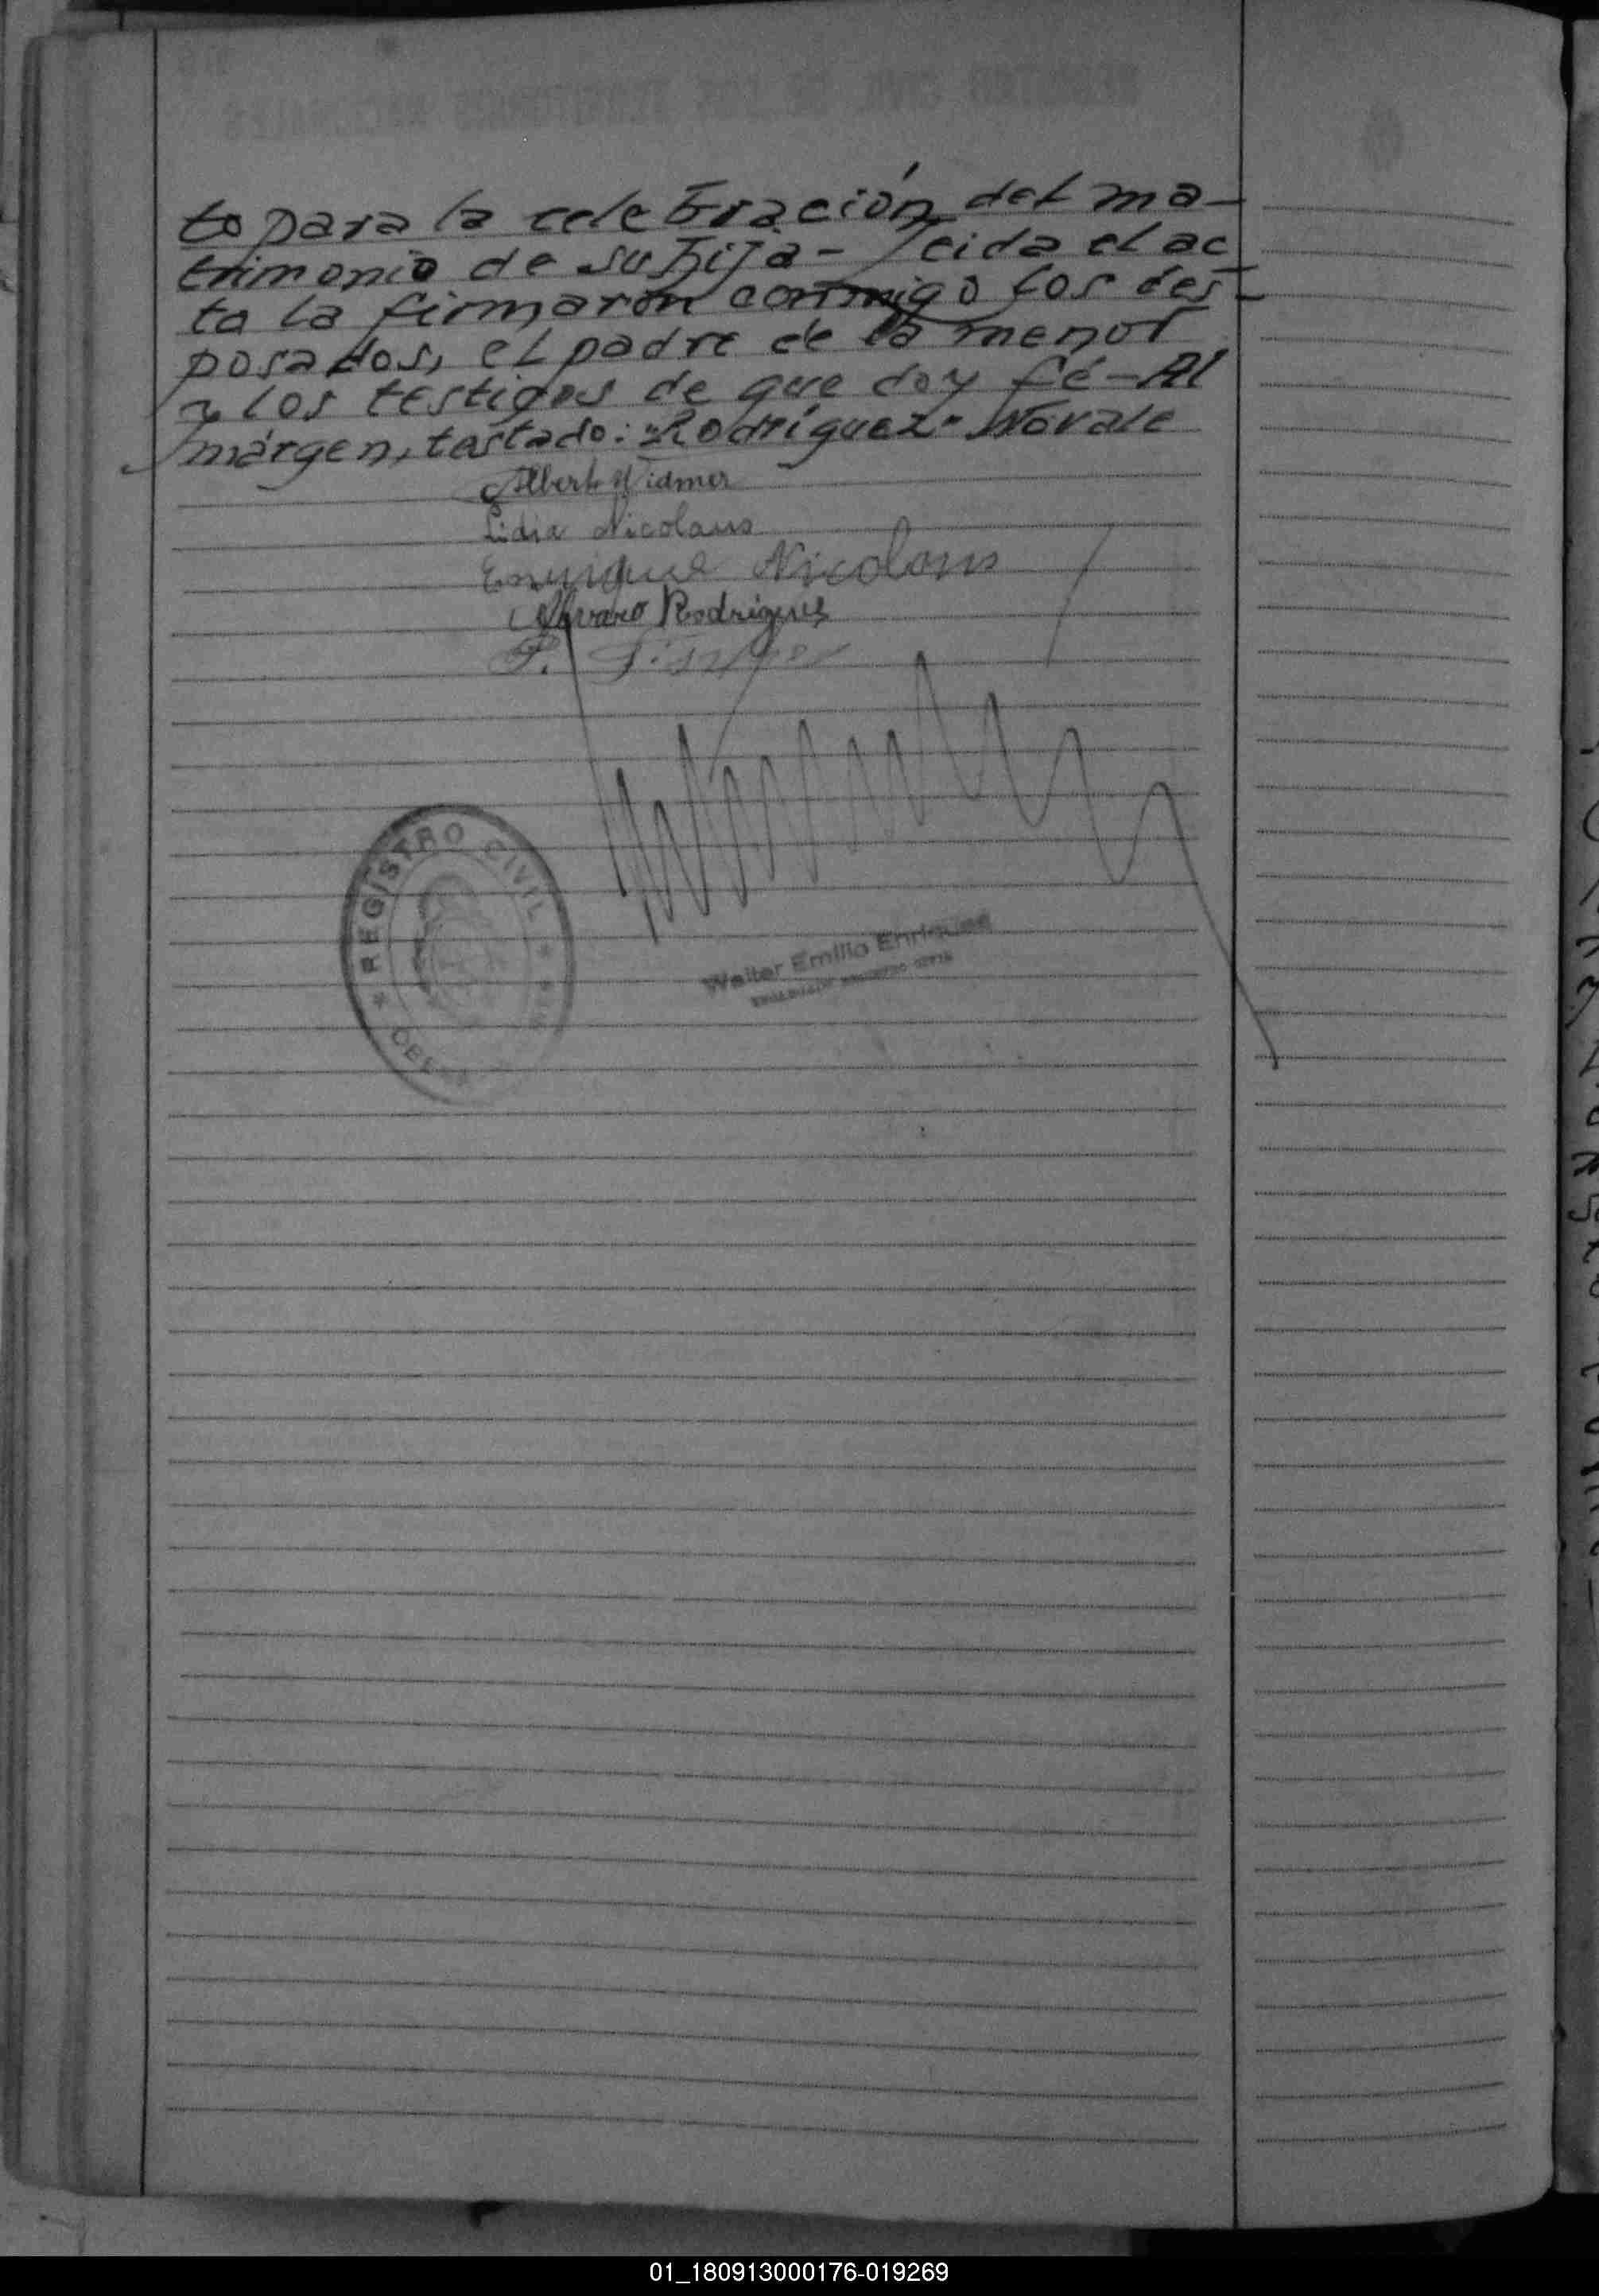 to para la celebración del ma-
trimonio de su hija - Leida el ac
ta la firmaron conmigo los des-
posados, el padre de la menor
y los testigos de que doy fé - Al
márgen, testado: "Rodríguez" No vale
Albert Widmer
Lidia Nicolaus
Enrrique Nicolaus
Alvaro Rodrigues
P.
REGISTRO CIVIL
OBERA
Walter Emilio Enriquez
01_180913000176-019269